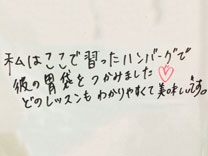 私はここで習ったハンバーグで
彼の胃袋をつかみました♡
どのレッスンもわかりやすくて美味しいです。